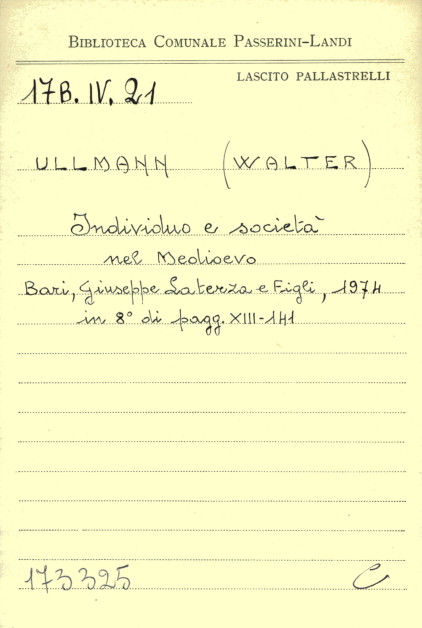 BIBLIOTECA COMUNALE PASSERINI-LANDI
LASCITO PALLASTRELLI
17B. IV. 21
ULLMANN (WALTER)
Individuo e società
nel Medioevo
Bari, Giuseppe Laterza e Figli, 1974
in 8° di pagg. XIII-141
173325 C